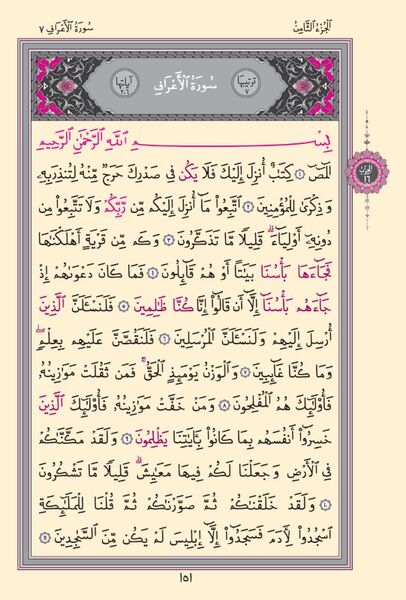 الجزء الثامن
سورة الأعراف ٧
ترتيبها ٧
سُورَةُ الْأَعْرَافِ
آياتها ٢٠٦
بِسْمِ اللَّهِ الرَّحْمَٰنِ الرَّحِيمِ
الٓمٓصٓ ١ كِتَابٌ أُنزِلَ إِلَيْكَ فَلَا يَكُن فِي صَدْرِكَ حَرَجٌ مِّنْهُ لِتُنذِرَ بِهِ
وَذِكْرَىٰ لِلْمُؤْمِنِينَ ٢ اتَّبِعُوا مَا أُنزِلَ إِلَيْكُم مِّن رَّبِّكُمْ وَلَا تَتَّبِعُوا مِن
دُونِهِ أَوْلِيَاءَ ۗ قَلِيلًا مَّا تَذَكَّرُونَ ٣ وَكَم مِّن قَرْيَةٍ أَهْلَكْنَاهَا
فَجَاءَهَا بَأْسُنَا بَيَاتًا أَوْ هُمْ قَائِلُونَ ٤ فَمَا كَانَ دَعْوَاهُمْ إِذْ
جَاءَهُم بَأْسُنَا إِلَّا أَن قَالُوا إِنَّا كُنَّا ظَالِمِينَ ٥ فَلَنَسْأَلَنَّ الَّذِينَ
أُرْسِلَ إِلَيْهِمْ وَلَنَسْأَلَنَّ الْمُرْسَلِينَ ٦ فَلَنَقُصَّنَّ عَلَيْهِم بِعِلْمٍ ۖ
وَمَا كُنَّا غَائِبِينَ ٧ وَالْوَزْنُ يَوْمَئِذٍ الْحَقُّ ۚ فَمَن ثَقُلَتْ مَوَازِينُهُ
فَأُولَٰئِكَ هُمُ الْمُفْلِحُونَ ٨ وَمَنْ خَفَّتْ مَوَازِينُهُ فَأُولَٰئِكَ الَّذِينَ
خَسِرُوا أَنفُسَهُم بِمَا كَانُوا بِآيَاتِنَا يَظْلِمُونَ ٩ وَلَقَدْ مَكَّنَّاكُمْ
فِي الْأَرْضِ وَجَعَلْنَا لَكُمْ فِيهَا مَعَايِشَ ۗ قَلِيلًا مَّا تَشْكُرُونَ
١٠ وَلَقَدْ خَلَقْنَاكُمْ ثُمَّ صَوَّرْنَاكُمْ ثُمَّ قُلْنَا لِلْمَلَائِكَةِ
اسْجُدُوا لِآدَمَ فَسَجَدُوا إِلَّا إِبْلِيسَ لَمْ يَكُن مِّنَ السَّاجِدِينَ ١١
الحزب ١٦
١٥١